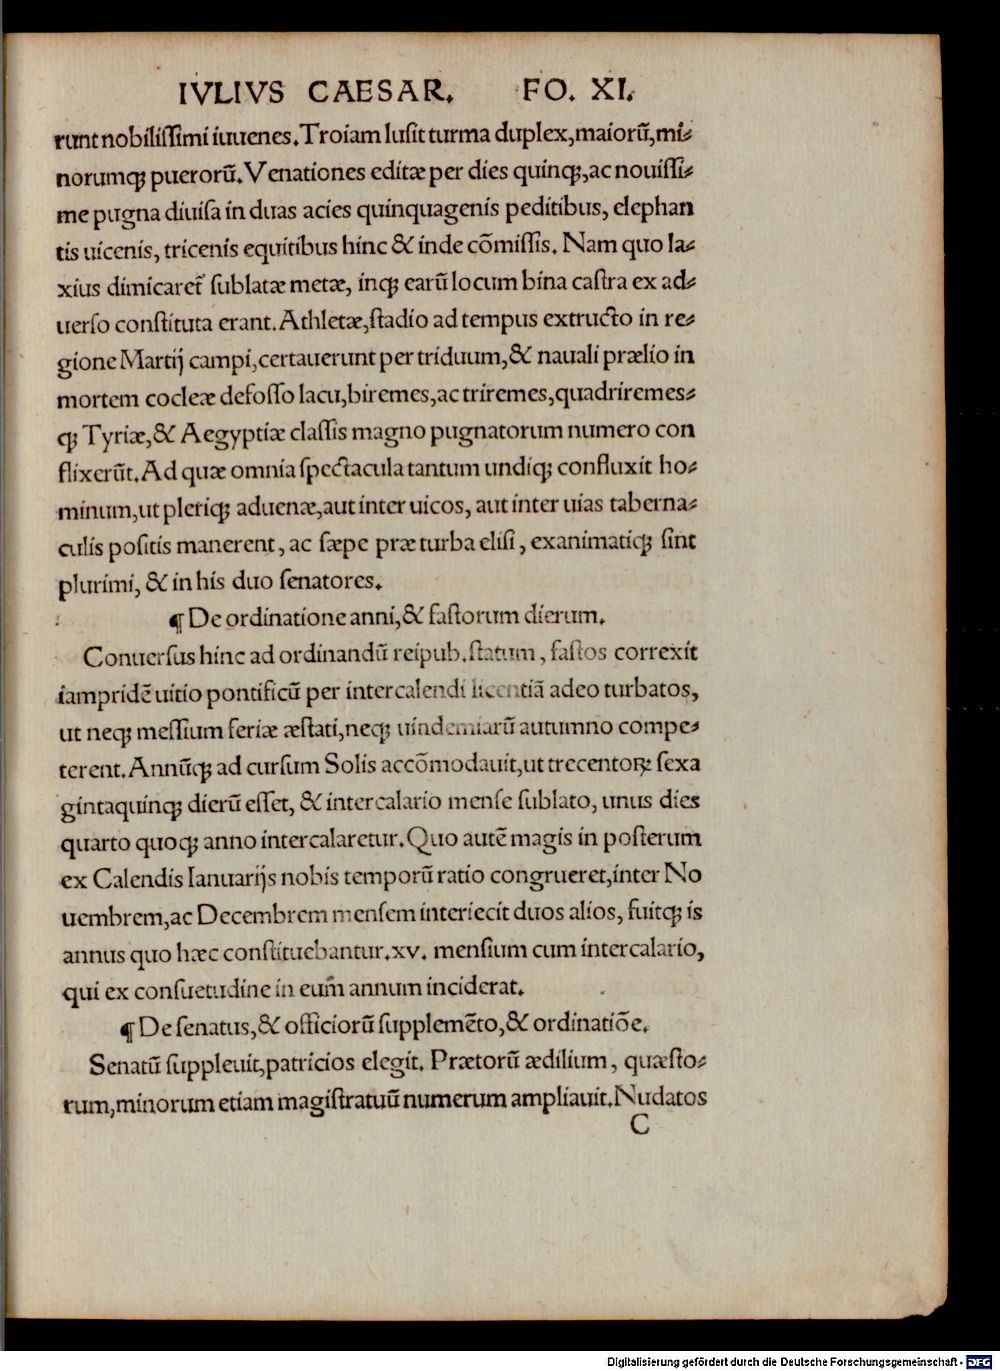 IVLIVS CAESAR. FO. XI.
runt nobiliſſimi iuuenes. Troiam luſit turma duplex, maiorũ, mi⸗
norumqꝫ puerorũ. Venationes editæ per dies quinqꝫ, ac nouiſſi⸗
me pugna diuiſa in duas acies quinquagenis peditibus, elephan
tis uicenis, tricenis equitibus hinc & inde cõmiſſis. Nam quo la⸗
xius dimicaret᷑ ſublatæ metæ, inqꝫ earũ locum bina caſtra ex ad⸗
uerſo conſtituta erant. Athletæ, ſtadio ad tempus extructo in re⸗
gione Martij campi, certauerunt per triduum, & nauali prælio in
mortem cocleæ defoſſo lacu, biremes, ac triremes, quadriremes⸗
qꝫ Tyriæ, & Aegyptiæ claſſis magno pugnatorum numero con
flixerũt. Ad quæ omnia ſpectacula tantum undiqꝫ confluxit ho⸗
minum, ut pleriqꝫ aduenæ, aut inter uicos, aut inter uias taberna⸗
culis poſitis manerent, ac ſæpe præ turba eliſi, exanimatiqꝫ ſint
plurimi, & in his duo ſenatores.
¶ De ordinatione anni, & faſtorum dierum.
Conuerſus hinc ad ordinandũ reipub. ſtatum, faſtos correxit
iampridẽ uitio pontificũ per intercalendi licentiã adeo turbatos,
ut neqꝫ meſſium feriæ æſtati, neqꝫ uindemiarũ autumno compe⸗
terent. Annũqꝫ ad curſum Solis accõmodauit, ut trecentoꝝ ſexa
gintaquinqꝫ dierũ eſſet, & intercalario menſe ſublato, unus dies
quarto quoqꝫ anno intercalaretur. Quo autẽ magis in poſterum
ex Calendis Ianuarijs nobis temporũ ratio congrueret, inter No
uembrem, ac Decembrem menſem interiecit duos alios, fuitqꝫ is
annus quo hæc conſtituebantur. xv. menſium cum intercalario,
qui ex conſuetudine in eum̃ annum inciderat.
¶ De ſenatus, & officiorũ ſupplemẽto, & ordinatiõe.
Senatũ ſuppleuit, patricios elegit. Prætorũ ædilium, quæſto⸗
rum, minorum etiam magiſtratuũ numerum ampliauit. Nudatos
C
Digitalisierung gefördert durch die Deutsche Forschungsgemeinschaft - DFG